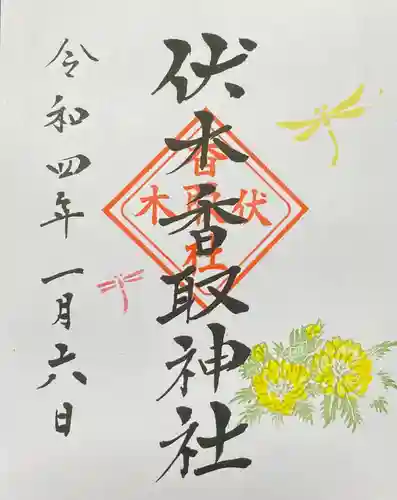 伏木香取神社
令和四年一月六日
伏木
香取
社